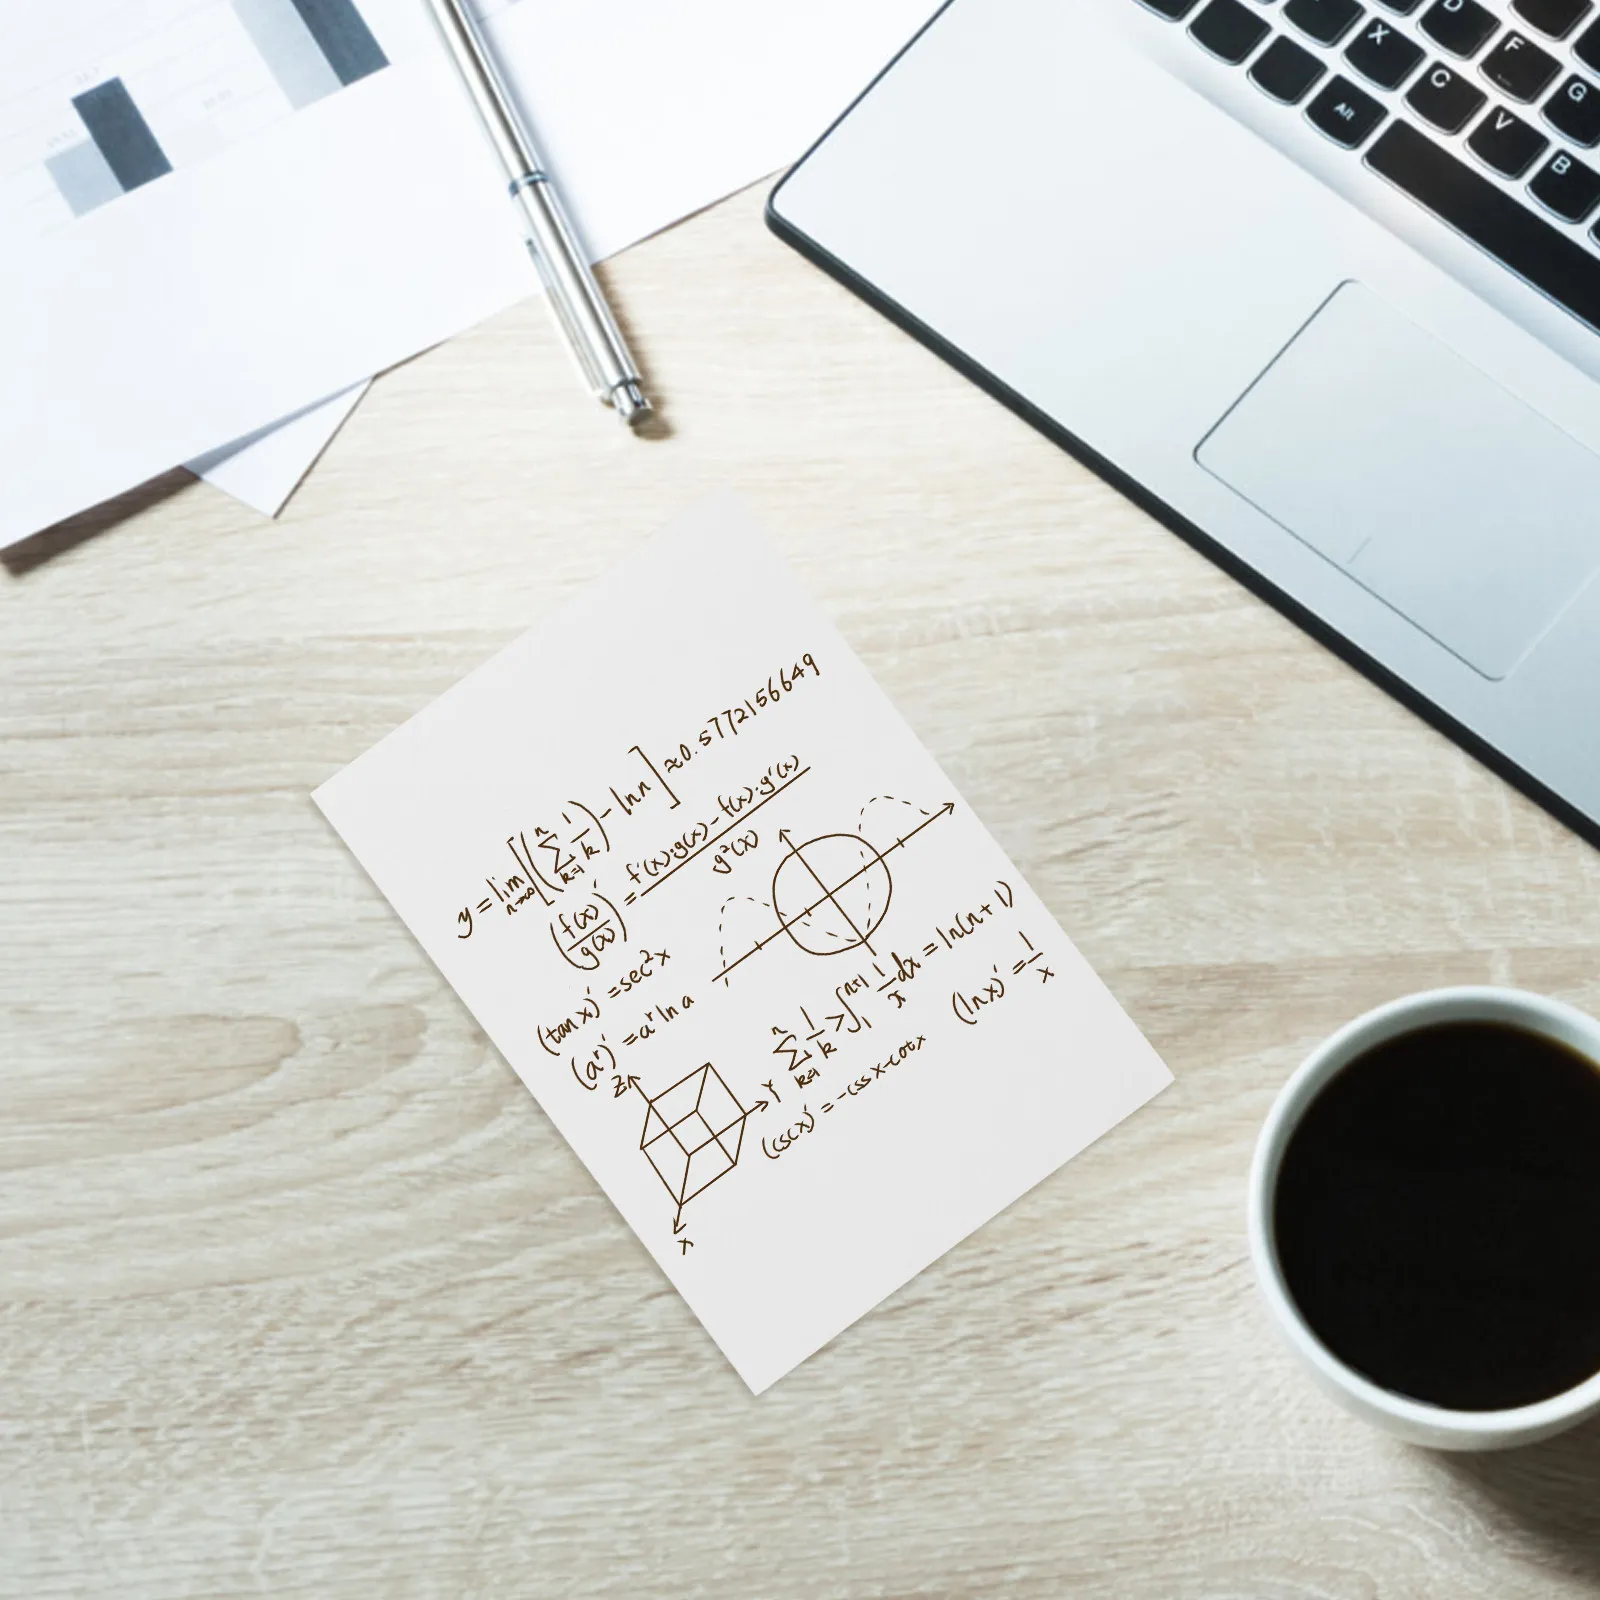 y = lim n→∞ [(∑ n k=1 1/k) - ln n] ≈ 0.57721566 49
(f(x)/g(x))' = f'(x)·g(x) - f(x)·g'(x) / g²(x)
(tan x)' = sec² x
(aʳ)' = aʳ ln a
∑ n k=1 1/k > ∫ n+1 1 1/x dx = ln(n+1)
(ln x)' = 1/x
(csc x)' = -css x-cot x
Z
Y
X
D
X
F
C
G
Alt
V
B